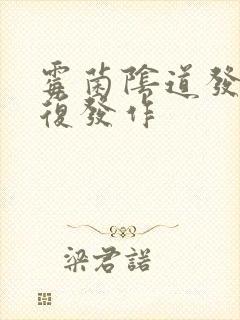 霉菌陰道發
復發作
梁君諾